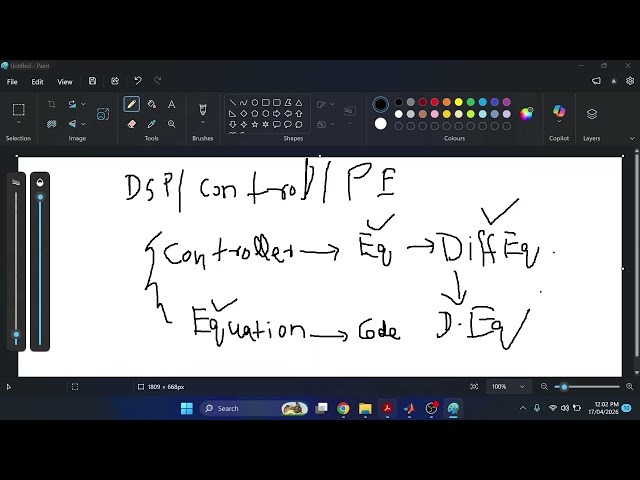 Untitled - Paint
File Edit View
Selection Image Tools Brushes Shapes Colors Copilot Layers
DSP/Control/PE
Controller → Eq → Diff Eq.
Equation → Code D.Eq
1809 × 668px 100%
Search 12:02 PM
17/04/2026